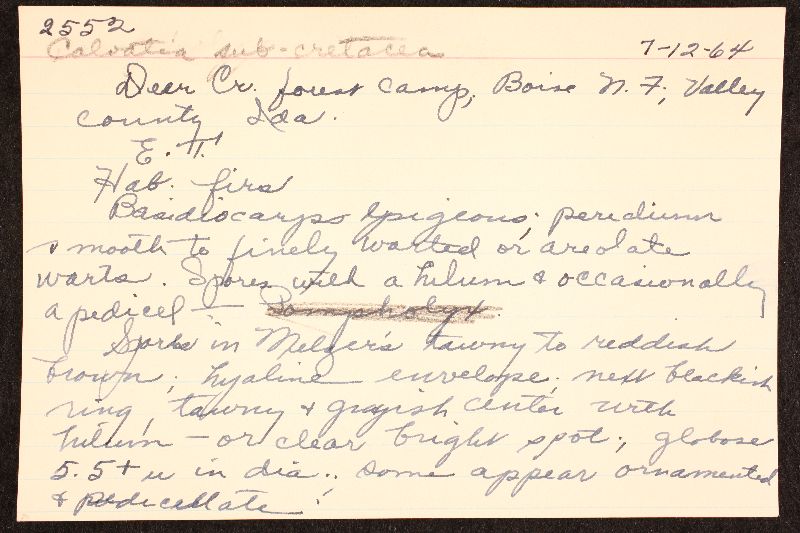 2552
Calvatia sub-cretacea 7-12-64
Deer Cr. forest camp, Boise N.F., Valley
county Ida.
E.T.
Hab. firs
Basidiocarps epigeous; peridium
smooth to finely warted or areolate
warts. Spores with a hilum & occasionally
a pedicel — Pompholyx.
Spores in Melzer's tawny to reddish
brown; hyaline envelope; next blackish
ring, tawny & grayish center with
hilum — or clear bright spot; globose
5.5+ u in dia.; some appear ornamented
& pedicellate!